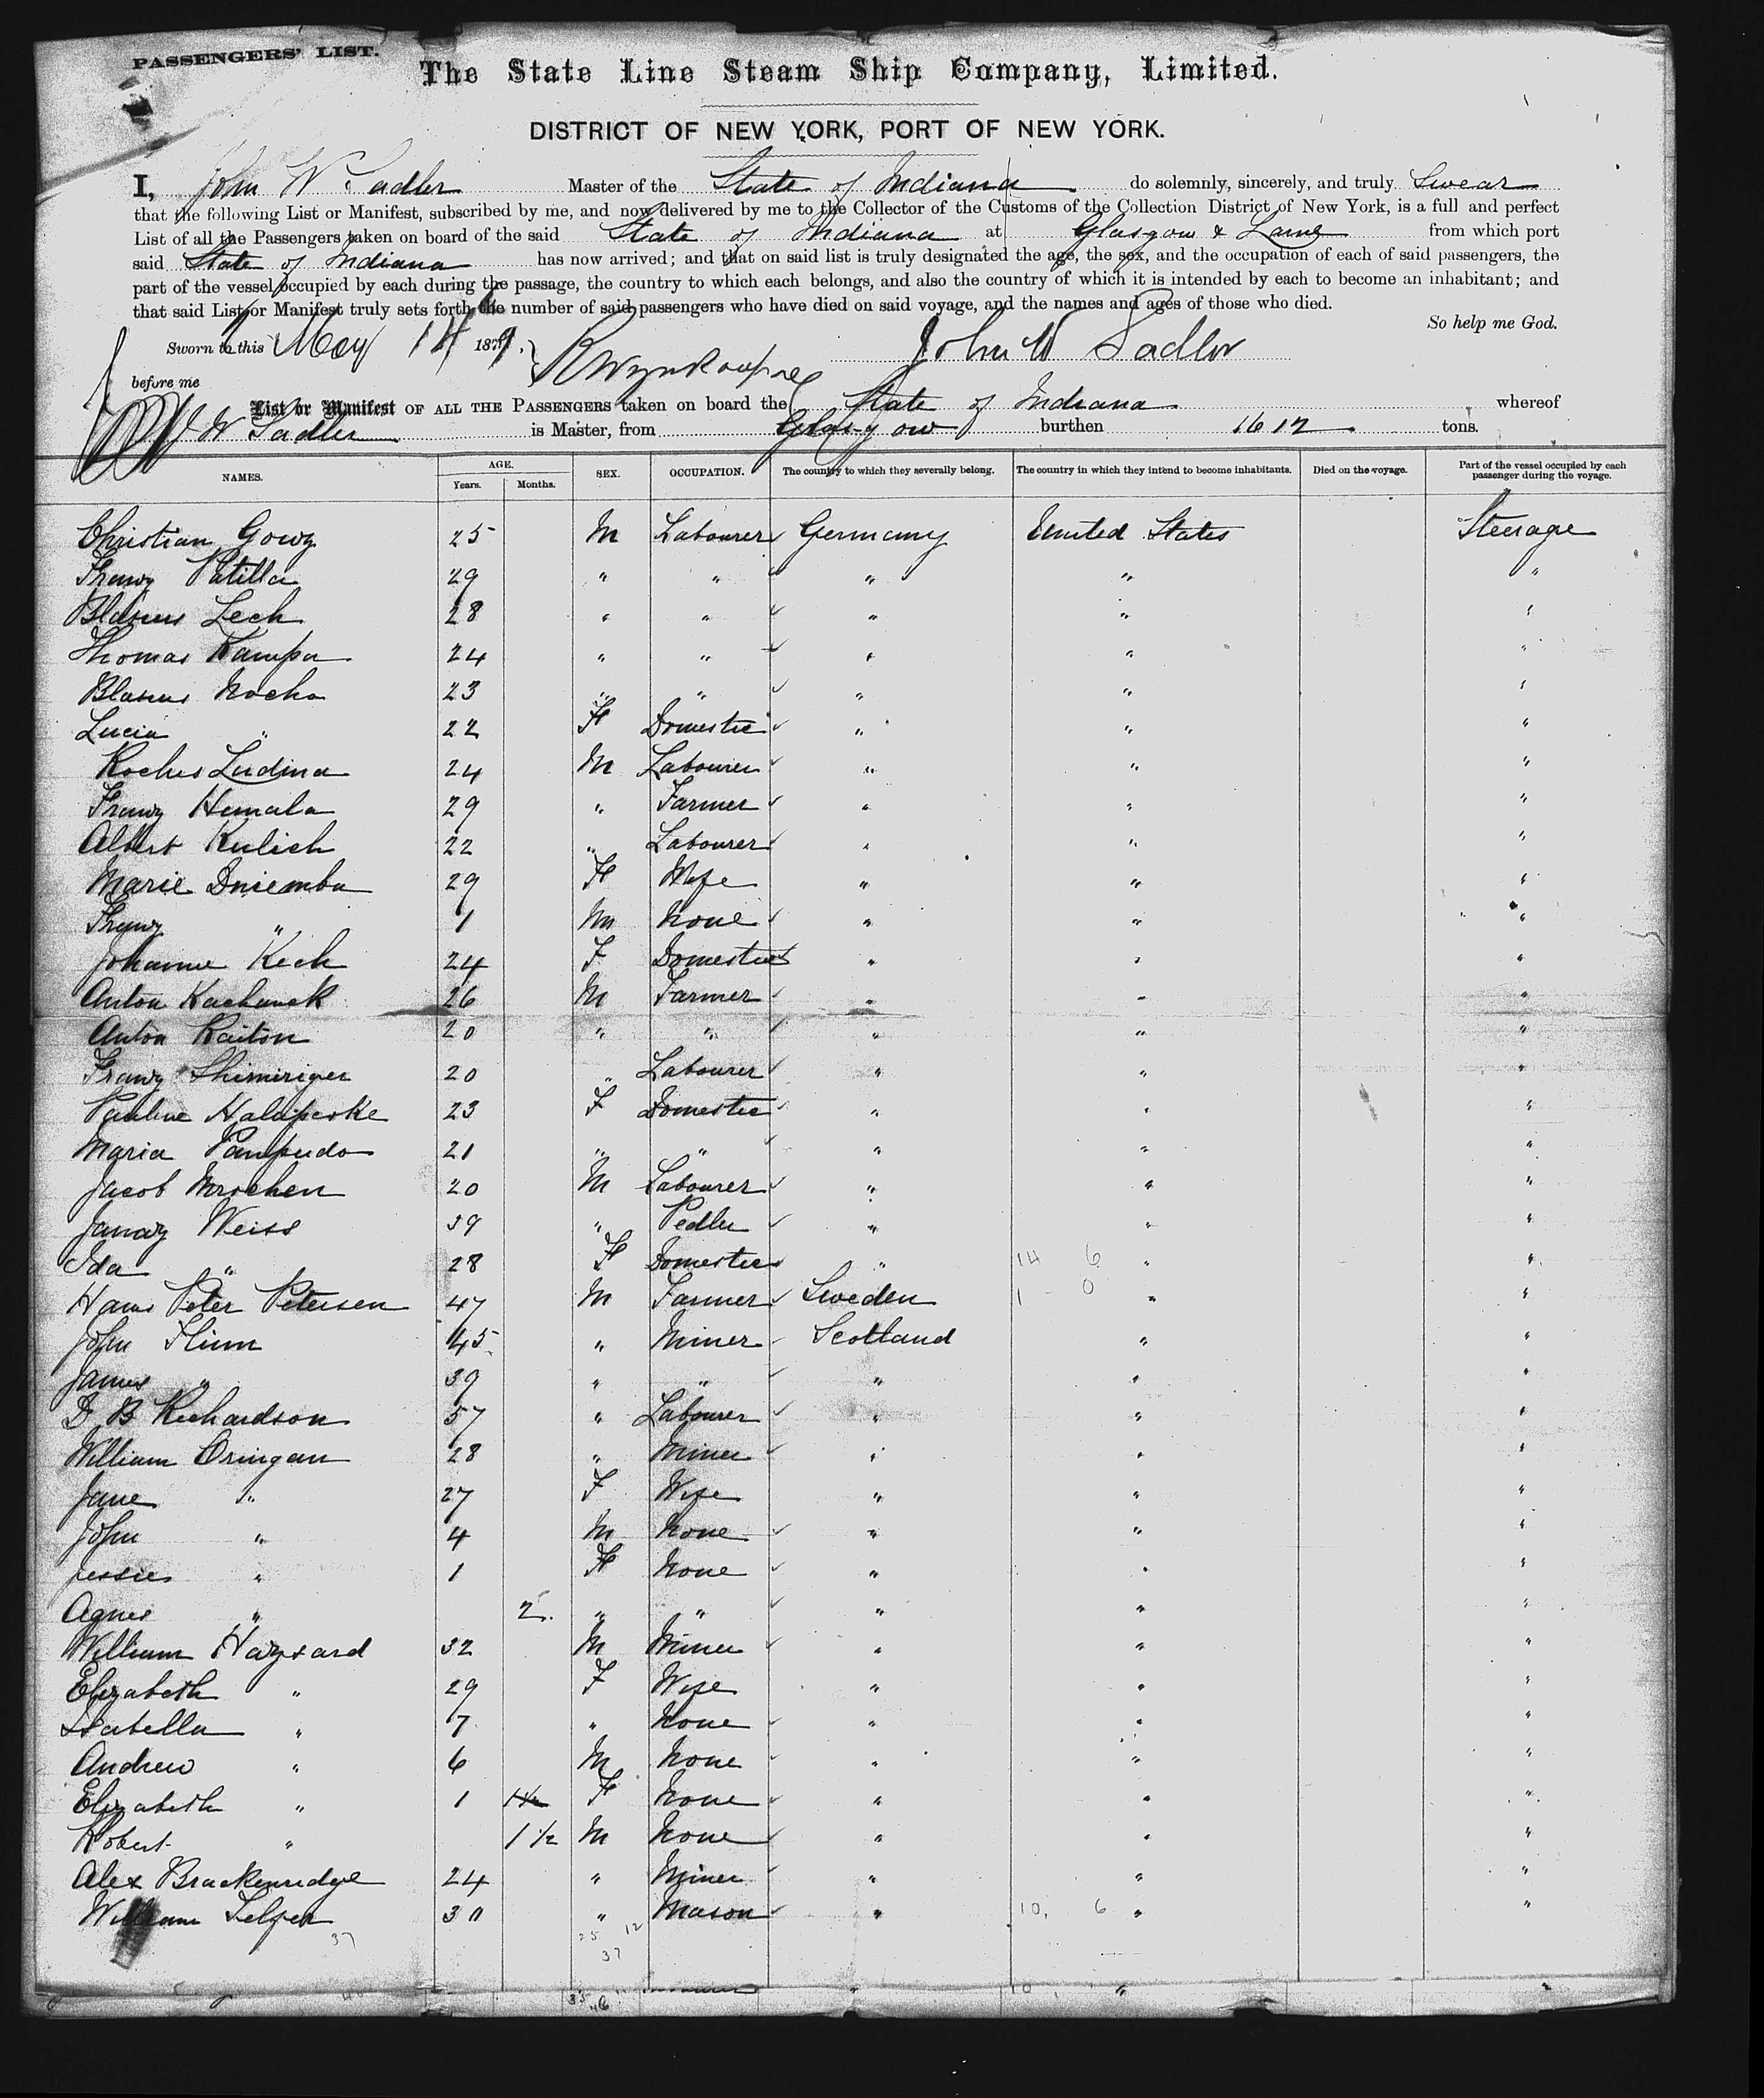 PASSENGERS' LIST.
The State Line Steam Ship Company, Limited.
DISTRICT OF NEW YORK, PORT OF NEW YORK.
I, John W Sadler Master of the State of Indiana do solemnly, sincerely, and truly Swear
that the following List or Manifest, subscribed by me, and now delivered by me to the Collector of the Customs of the Collection District of New York, is a full and perfect
List of all the Passengers taken on board of the said State of Indiana at Glasgow & Larne from which port
said State of Indiana has now arrived; and that on said list is truly designated the age, the sex, and the occupation of each of said passengers, the
part of the vessel occupied by each during the passage, the country to which each belongs, and also the country of which it is intended by each to become an inhabitant; and
that said List or Manifest truly sets forth the number of said passengers who have died on said voyage, and the names and ages of those who died.
So help me God.
Sworn to this May 14 1879. John W Sadler
before me
List or Manifest OF ALL THE PASSENGERS taken on board the State of Indiana whereof
J W Sadler is Master, from Glasgow burthen 1612 tons.
NAMES. AGE. Years. Months. SEX. OCCUPATION. The country to which they severally belong. The country in which they intend to become inhabitants. Died on the voyage. Part of the vessel occupied by each passenger during the voyage.
Christian Gowz 25 M Labourer Germany United States Steerage
Franz Patilla 29 " " " " "
Blasius Lech 28 " " " " "
Thomas Kampa 24 " " " " "
Blasius Nocha 23 " " " " "
Lucia " 22 F Domestic " " "
Rochus Ludina 24 M Labourer " " "
Franz Hemala 29 " Farmer " " "
Albert Kulich 22 " Labourer " " "
Marie Dniemba 29 F Wife " " "
Franz " 1 M None " " "
Johanne Kech 24 F Domestic " " "
Anton Kachanek 26 M Farmer " " "
Anton Raiton 20 " " " " "
Franz 20 " Labourer " " "
Pauline 23 F Domestic " " "
Maria Pampudo 21 " " " " "
Jacob Mrochen 20 M Labourer " " "
Weiss 39 " Pedler " " "
Ida " 28 F Domestic " 14 6 " "
Hans Peter Petersen 47 M Farmer Sweden 1 0 " "
John Flinn 45 " Miner Scotland " "
James " 39 " " " " "
D B Richardson 57 " Labourer " " "
William Bringan 28 " Miner " " "
Jane " 27 F Wife " " "
John " 4 M None " " "
Jessie " 1 F None " " "
Agnes " 2 " " " " "
William Haysard 32 M Miner " " "
Elizabeth " 29 F Wife " " "
Isabella " 7 " None " " "
Andrew " 6 M None " " "
Elizabeth " 1 1½ F None " " "
Robert " 1½ M None " " "
Alex Brackenridge 24 " Miner " " "
William Telfer 30 " Mason " 10, 6 " "
37 25 12
37